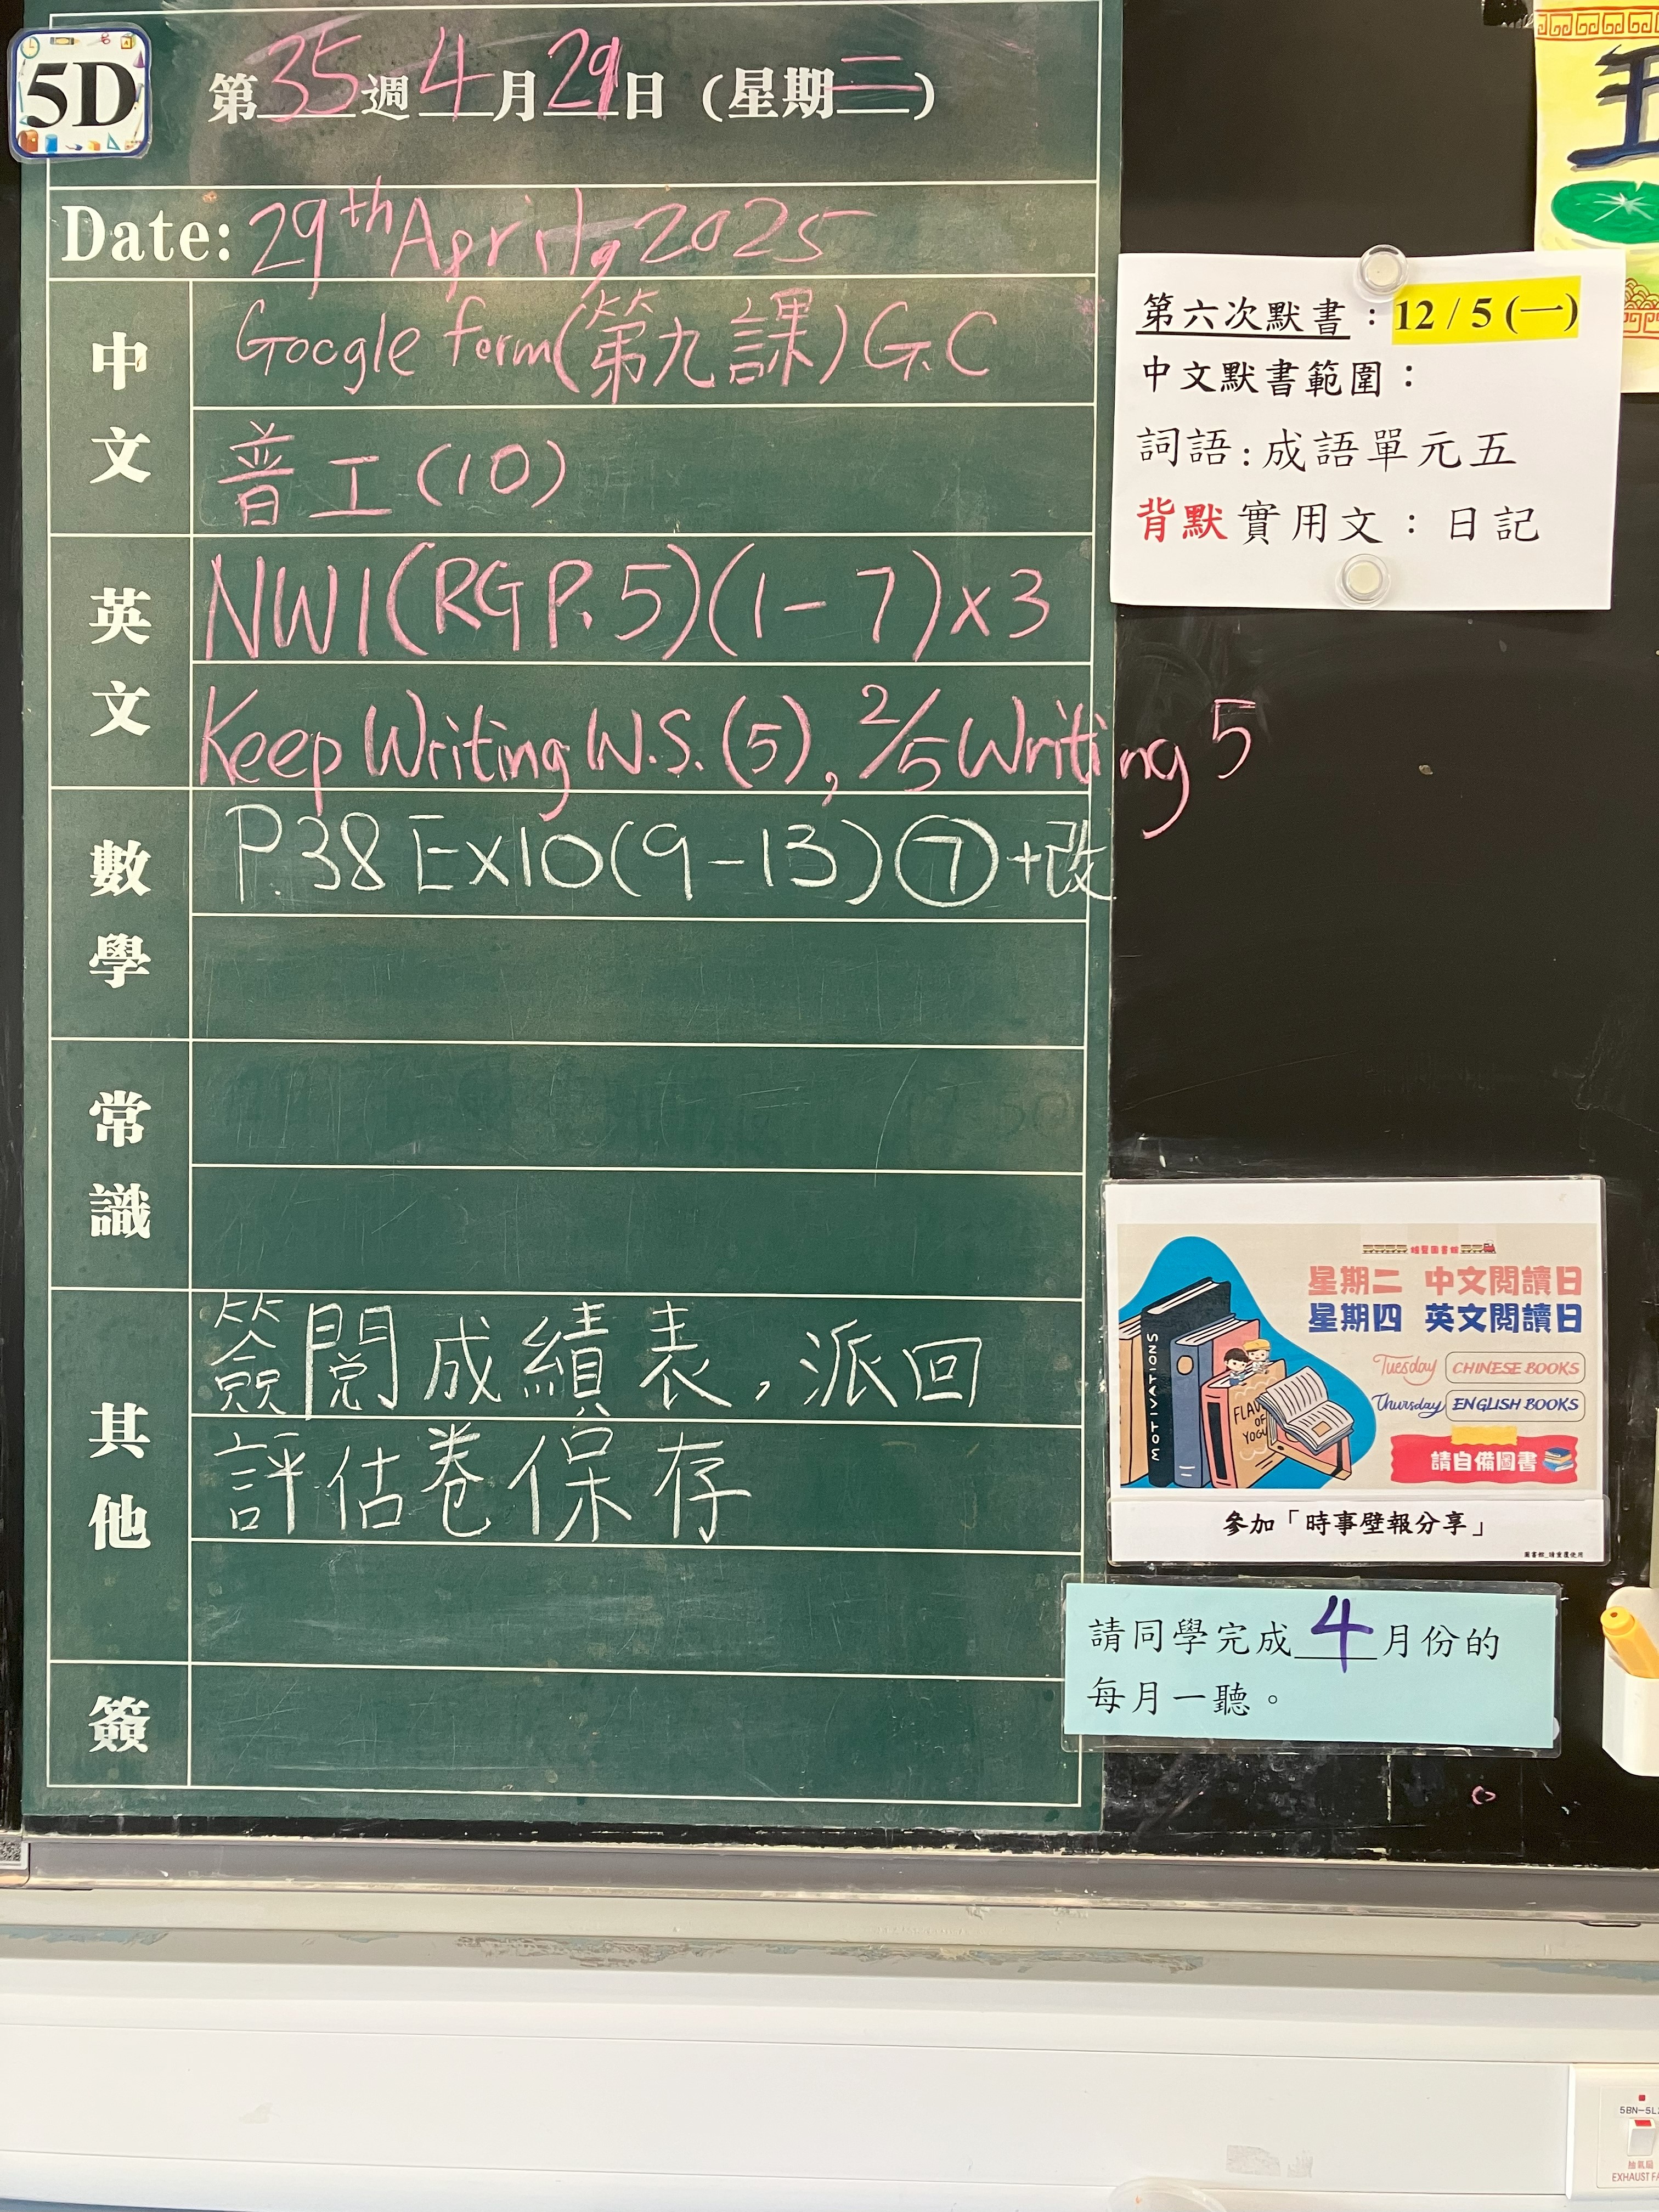 5D
第35週4月29日 (星期二)
Date: 29th April, 2025
中文
Google form(第九課) G.C
普工(10)
英文
NW1(RG P. 5)(1-7)x3
Keep Writing W.S. (5), 2/5 Writing 5
數學
P.38 Ex10(9-13)⑦+改
常識
其他
簽閱成績表,派回
評估卷保存
簽
第六次默書:12 / 5 (一)
中文默書範圍:
詞語:成語單元五
背默實用文:日記
星期二 中文閱讀日
星期四 英文閱讀日
Tuesday CHINESE BOOKS
Thursday ENGLISH BOOKS
請自備圖書
MOTIVATIONS
參加「時事壁報分享」
圖書館_請重覆使用
請同學完成4月份的
每月一聽。
5BN-5L
抽氣扇
EXHAUST FA